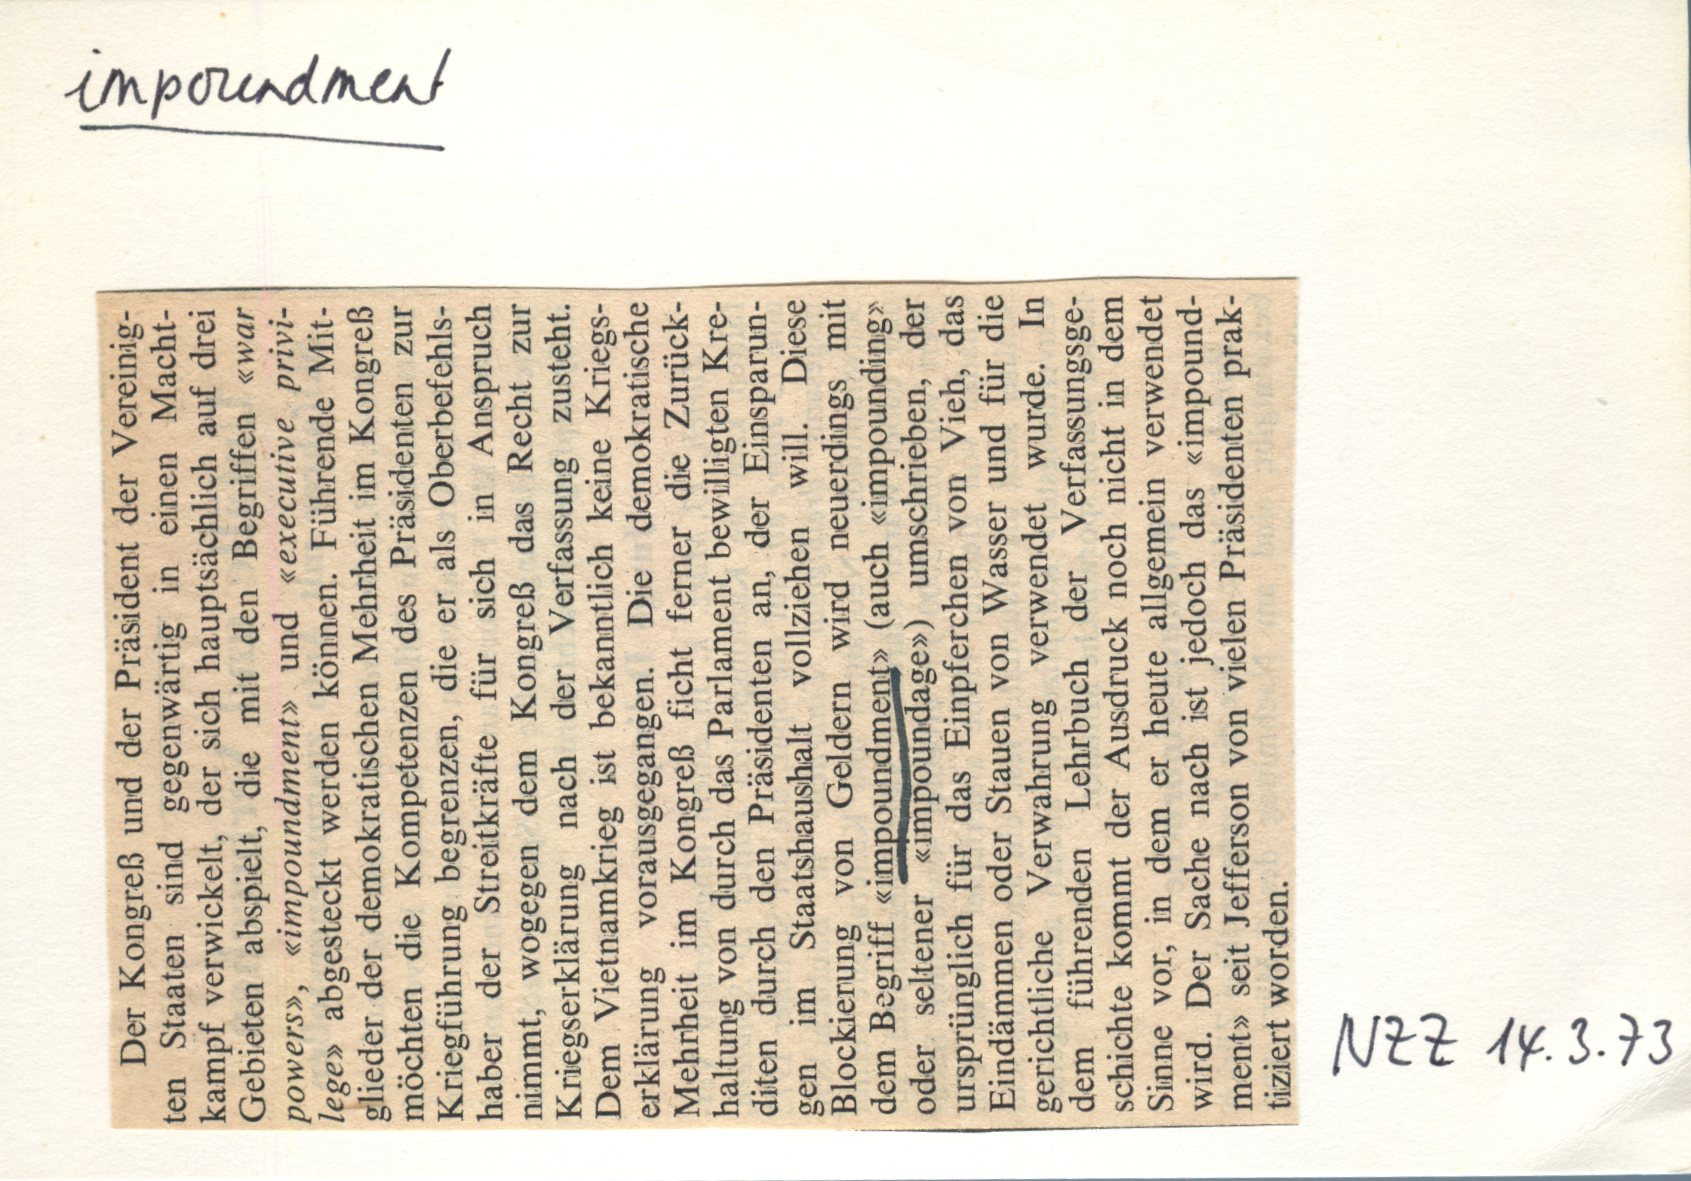 impoundment
Der Kongreß und der Präsident der Vereinig-
ten Staaten sind gegenwärtig in einen Macht-
kampf verwickelt, der sich hauptsächlich auf drei
Gebieten abspielt, die mit den Begriffen «war
powers», «impoundment» und «executive privi-
lege» abgesteckt werden können. Führende Mit-
glieder der demokratischen Mehrheit im Kongreß
möchten die Kompetenzen des Präsidenten zur
Kriegführung begrenzen, die er als Oberbefehls-
haber der Streitkräfte für sich in Anspruch
nimmt, wogegen dem Kongreß das Recht zur
Kriegserklärung nach der Verfassung zusteht.
Dem Vietnamkrieg ist bekanntlich keine Kriegs-
erklärung vorausgegangen. Die demokratische
Mehrheit im Kongreß ficht ferner die Zurück-
haltung von durch das Parlament bewilligten Kre-
diten durch den Präsidenten an, der Einsparun-
gen im Staatshaushalt vollziehen will. Diese
Blockierung von Geldern wird neuerdings mit
dem Begriff «impoundment» (auch «impounding»
oder seltener «impoundage») umschrieben, der
ursprünglich für das Einpferchen von Vieh, das
Eindämmen oder Stauen von Wasser und für die
gerichtliche Verwahrung verwendet wurde. In
dem führenden Lehrbuch der Verfassungsge-
schichte kommt der Ausdruck noch nicht in dem
Sinne vor, in dem er heute allgemein verwendet
wird. Der Sache nach ist jedoch das «impound-
ment» seit Jefferson von vielen Präsidenten prak-
tiziert worden.
NZZ 14.3.73